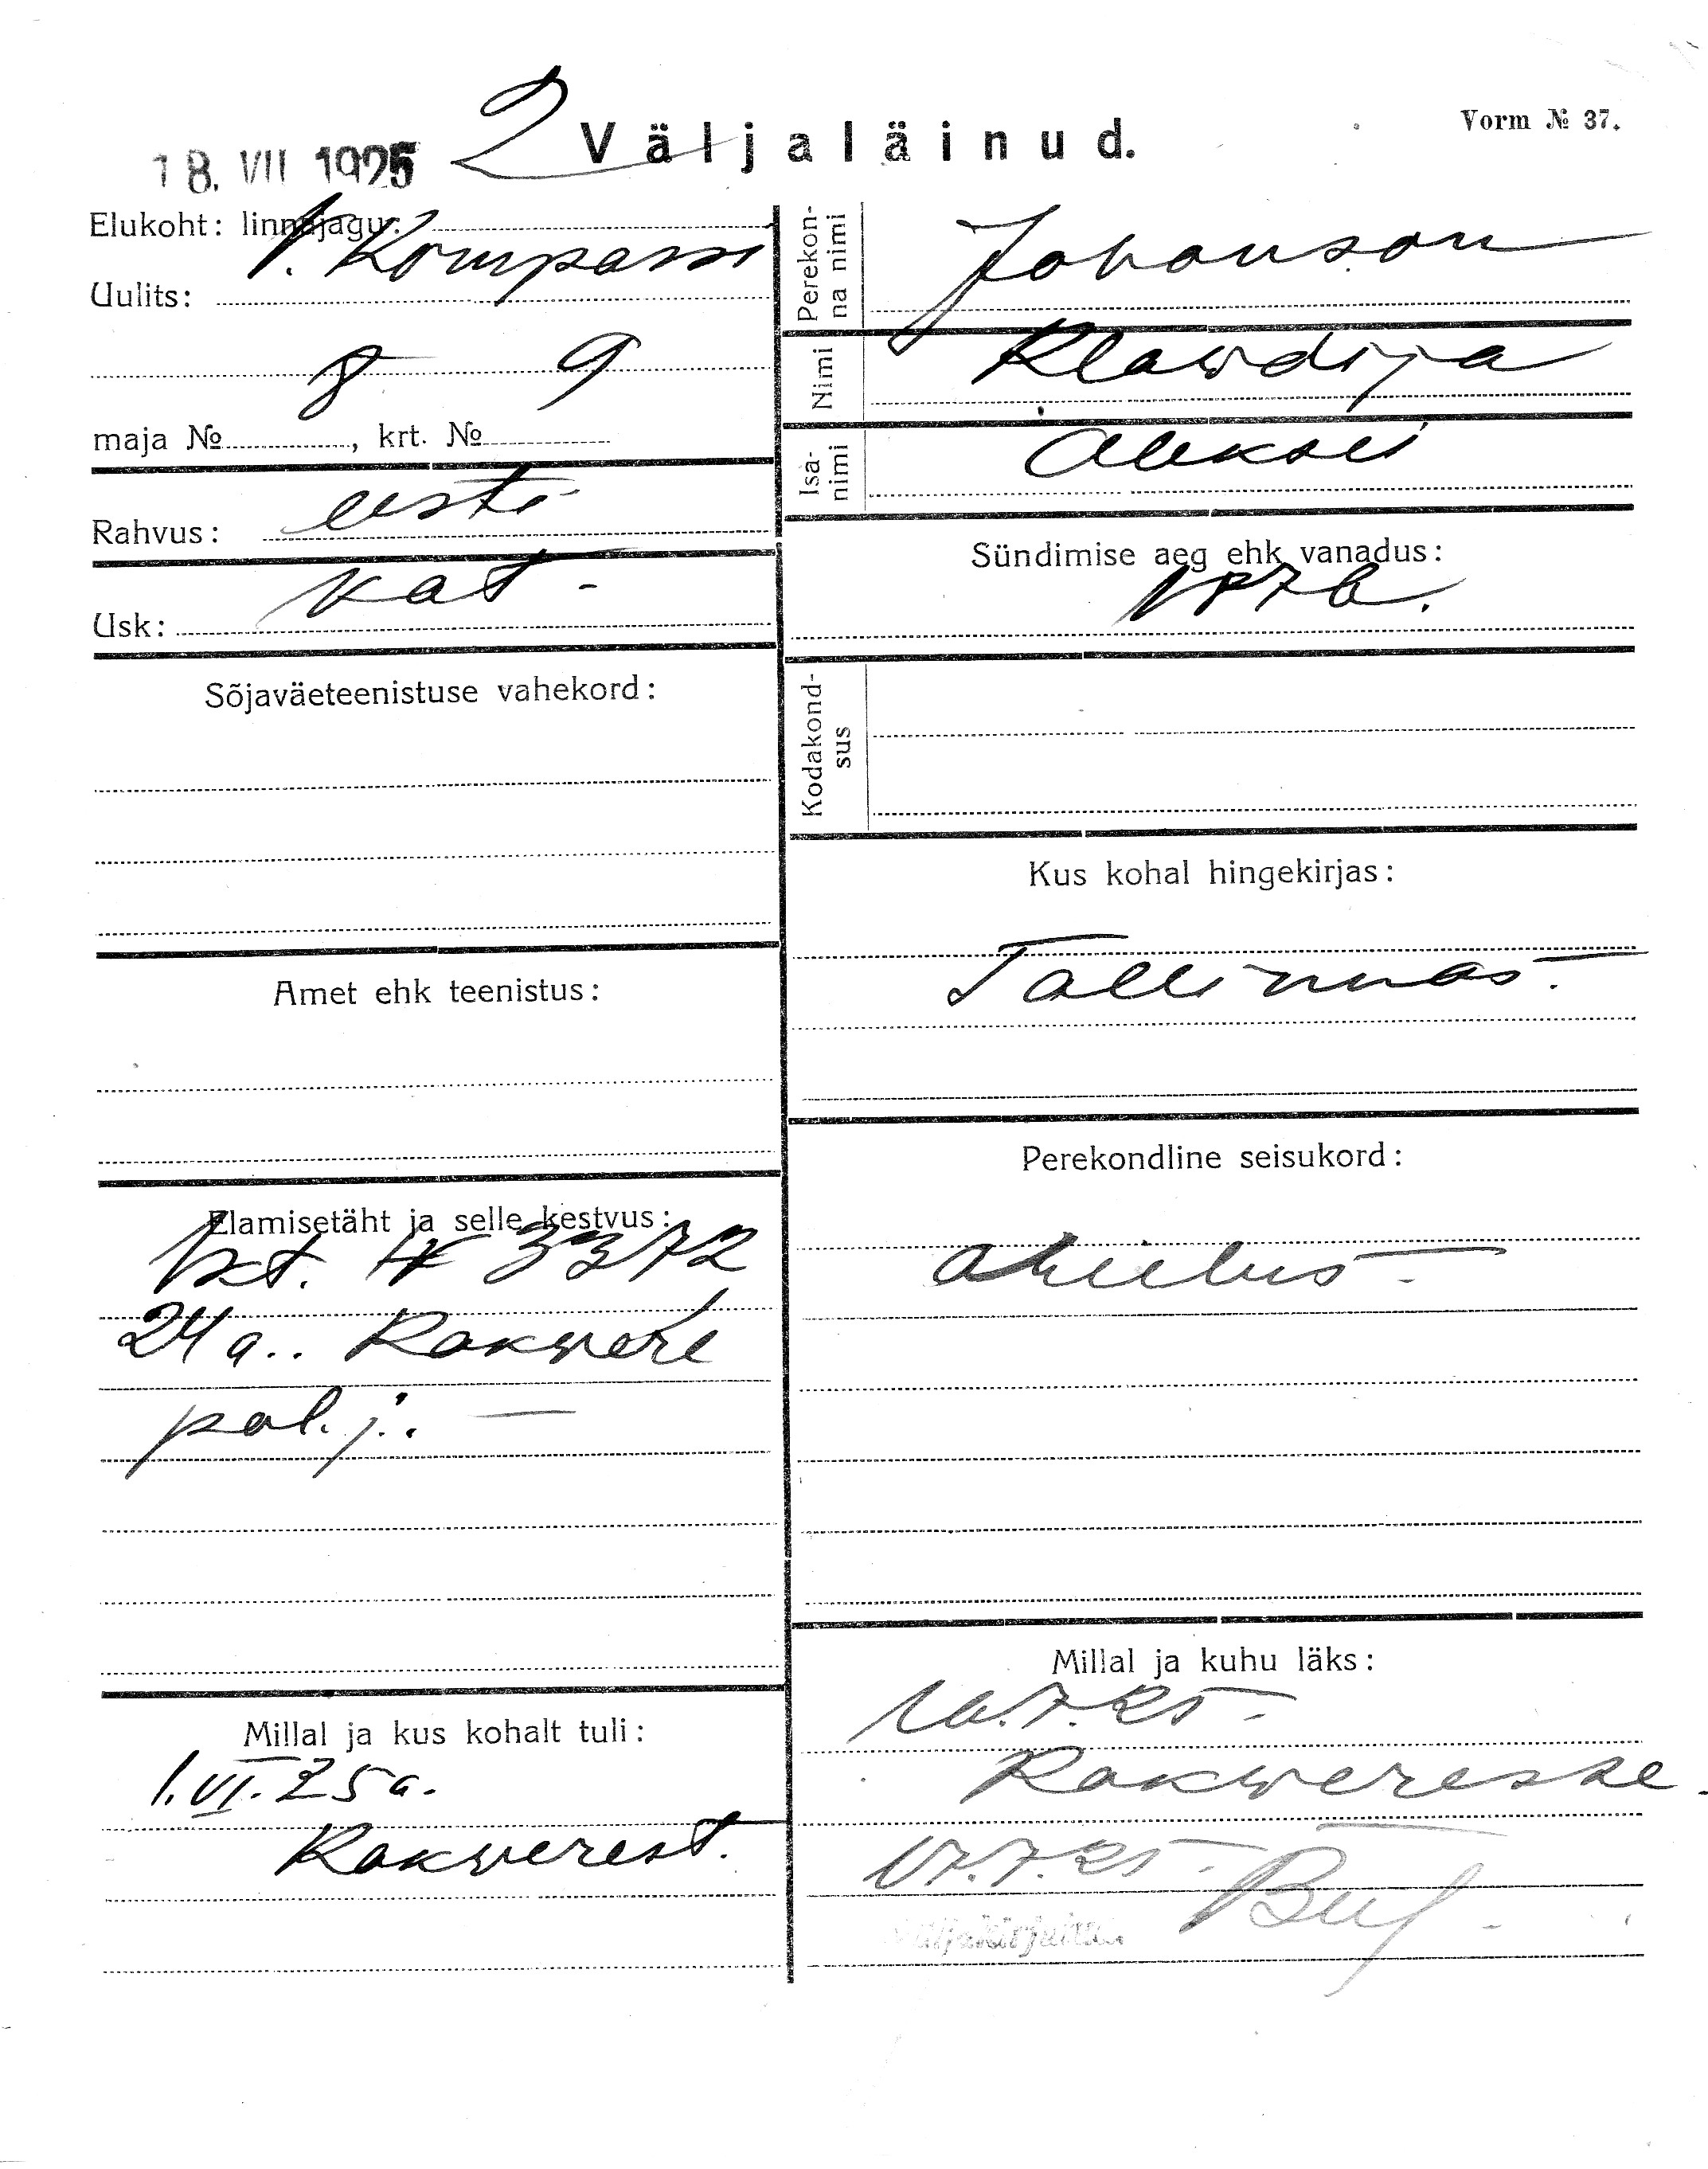 Vorm № 37.
18. VII 1925
2 Väljaläinud.
Elukoht: linnajagu:
V. Kompassi
Uulits:
8 9
maja № , krt. №
Rahvus: eesti
Usk: kat -
Sõjaväeteenistuse vahekord:
Amet ehk teenistus:
Elamisetäht ja selle kestvus:
Ist. № 3372
24 a.. Rakvere
pol. j. . —
Millal ja kus kohalt tuli:
1. VI. 25 a.
Rakwerest.
Perekonna nimi Johanson
Nimi Klawdija
Isanimi Aleksei
Sündimise aeg ehk vanadus:
Kodakondsus
Kus kohal hingekirjas:
Tallinnas.
Perekondline seisukord:
abielus -
Millal ja kuhu läks:
16.7.25 -
Rakwereske.
17.7.25 -